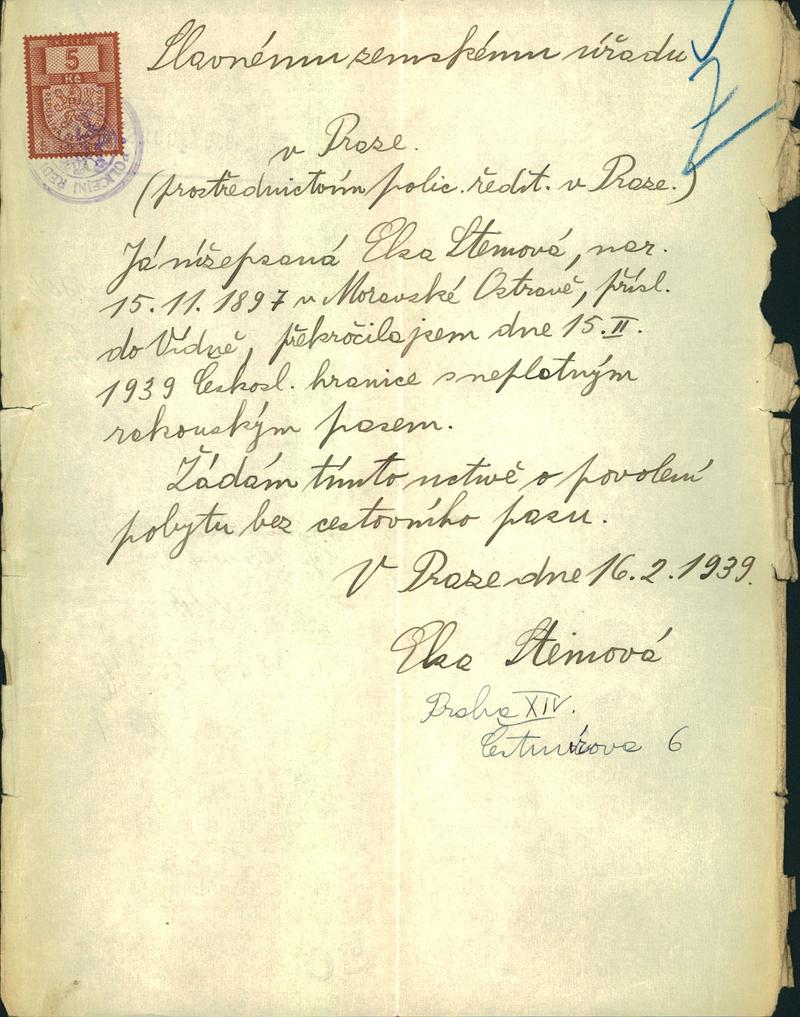 KOLEK
5
Kč
POLICEJNÍ ŘED
Slavnému zemskému úřadu
v Praze.
(prostřednictvím polic. ředit. v Praze.)
Já nížepsaná Elsa Sternová, nar.
15.11.1897 v Moravské Ostravě, přísl.
do Vídně, překročila jsem dne 15.II.
1939 Českosl. hranice s neplatným
rakouským pasem.
Žádám tímto uctivě o povolení
pobytu bez cestovního pasu.
V Praze dne 16.2.1939.
Elsa Sternová
Praha XIV.
Čestmírova 6